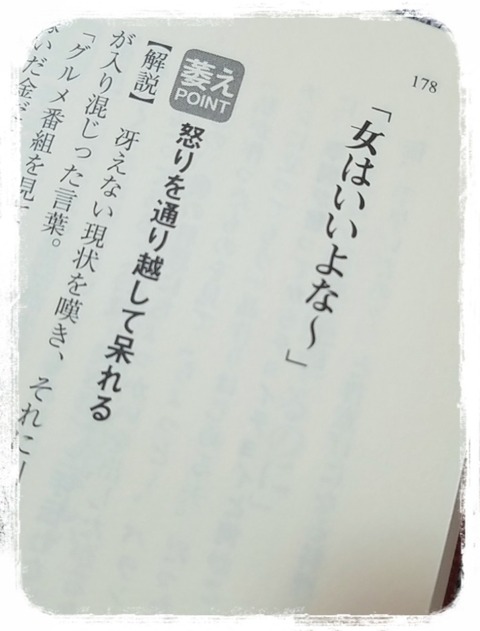 178
「女はいいよな～」
萎え
POINT
怒りを通り越して呆れる
【解説】 冴えない現状を嘆き、それに
が入り混じった言葉。
「グルメ番組を見
いだ金